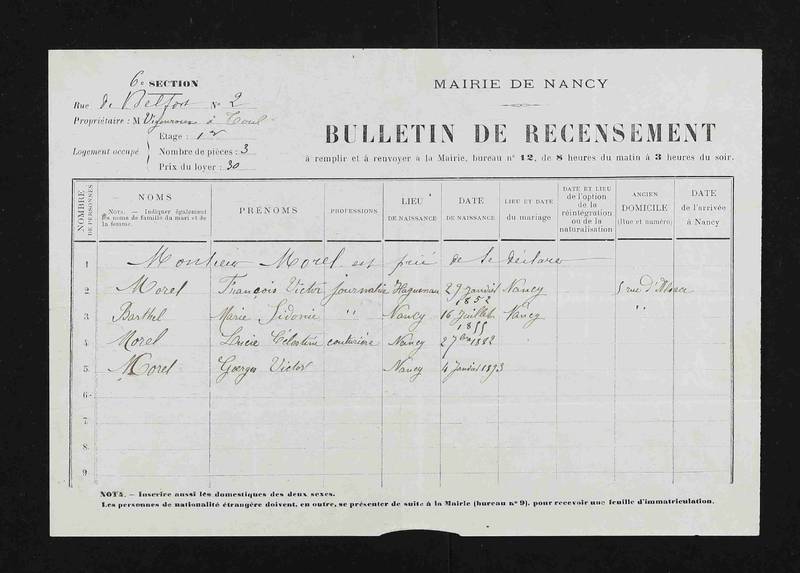 6e SECTION
Rue de Belfort No 2
Propriétaire : M à Toul
Etage : 1er
Logement occupé
Nombre de pièces : 3
Prix du loyer : 30
MAIRIE DE NANCY
BULLETIN DE RECENSEMENT
à remplir et à renvoyer à la Mairie, bureau no 12, de 8 heures du matin à 3 heures du soir.
NOMBRE DE PERSONNES
NOMS
NOTA. — Indiquer également les noms de famille du mari et de la femme.
PRÉNOMS
PROFESSIONS
LIEU DE NAISSANCE
DATE DE NAISSANCE
LIEU ET DATE du mariage
DATE ET LIEU de l'option de la réintégration ou de la naturalisation
ANCIEN DOMICILE (Rue et numéro)
DATE de l'arrivée à Nancy
1 Monsieur Morel est prié de se déclarer
2 Morel François Victor journalier Haguenau 29 janvier 1852 Nancy 5 rue d'Alsace
3 Barthel Marie Sidonie " Nancy 16 Juillet 1855 Nancy "
4 Morel Lucie Célestine couturière Nancy 27 1882
5 Morel Georges Victor Nancy 4 janvier 1893
6
7
8
9
NOTA. — Inscrire aussi les domestiques des deux sexes.
Les personnes de nationalité étrangère doivent, en outre, se présenter de suite à la Mairie (bureau no 9), pour recevoir une feuille d'immatriculation.